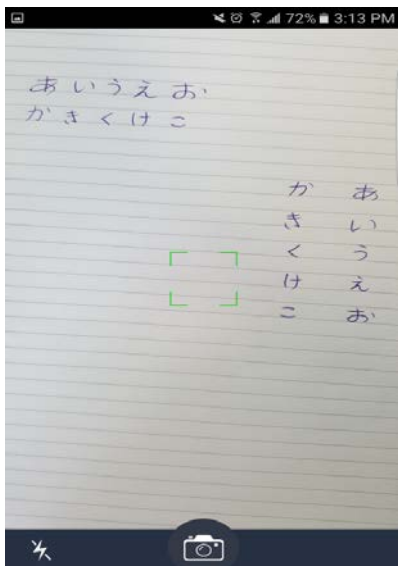 72% 3:13 PM
あいうえお
かきくけこ
あいうえお
かきくけこ